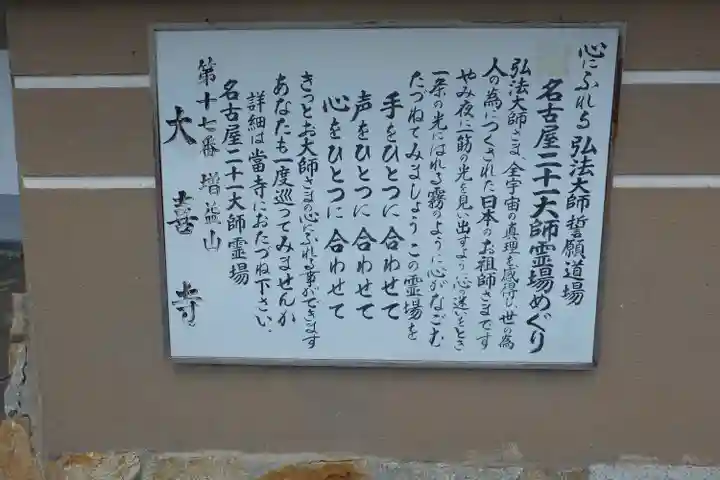 心にふれる 弘法大師 誓願道場
名古屋二十一大師霊場めぐり
弘法大師さま、全宇宙の真理を感得し、世の為
人の為につくされた日本のお祖師さまです
やみ夜に一筋の光を見い出すよう心迷いしとき
一条の光にはれる霧のように心がなごむ
たづねてみましょうこの霊場を
手をひとつに合わせて
声をひとつに合わせて
心をひとつに合わせて
きっとお大師さまの心にふれる事ができます
あなたも一度巡ってみませんか
詳細は當寺におたづね下さい。
名古屋二十一大師霊場
第十七番 増益山
大喜寺